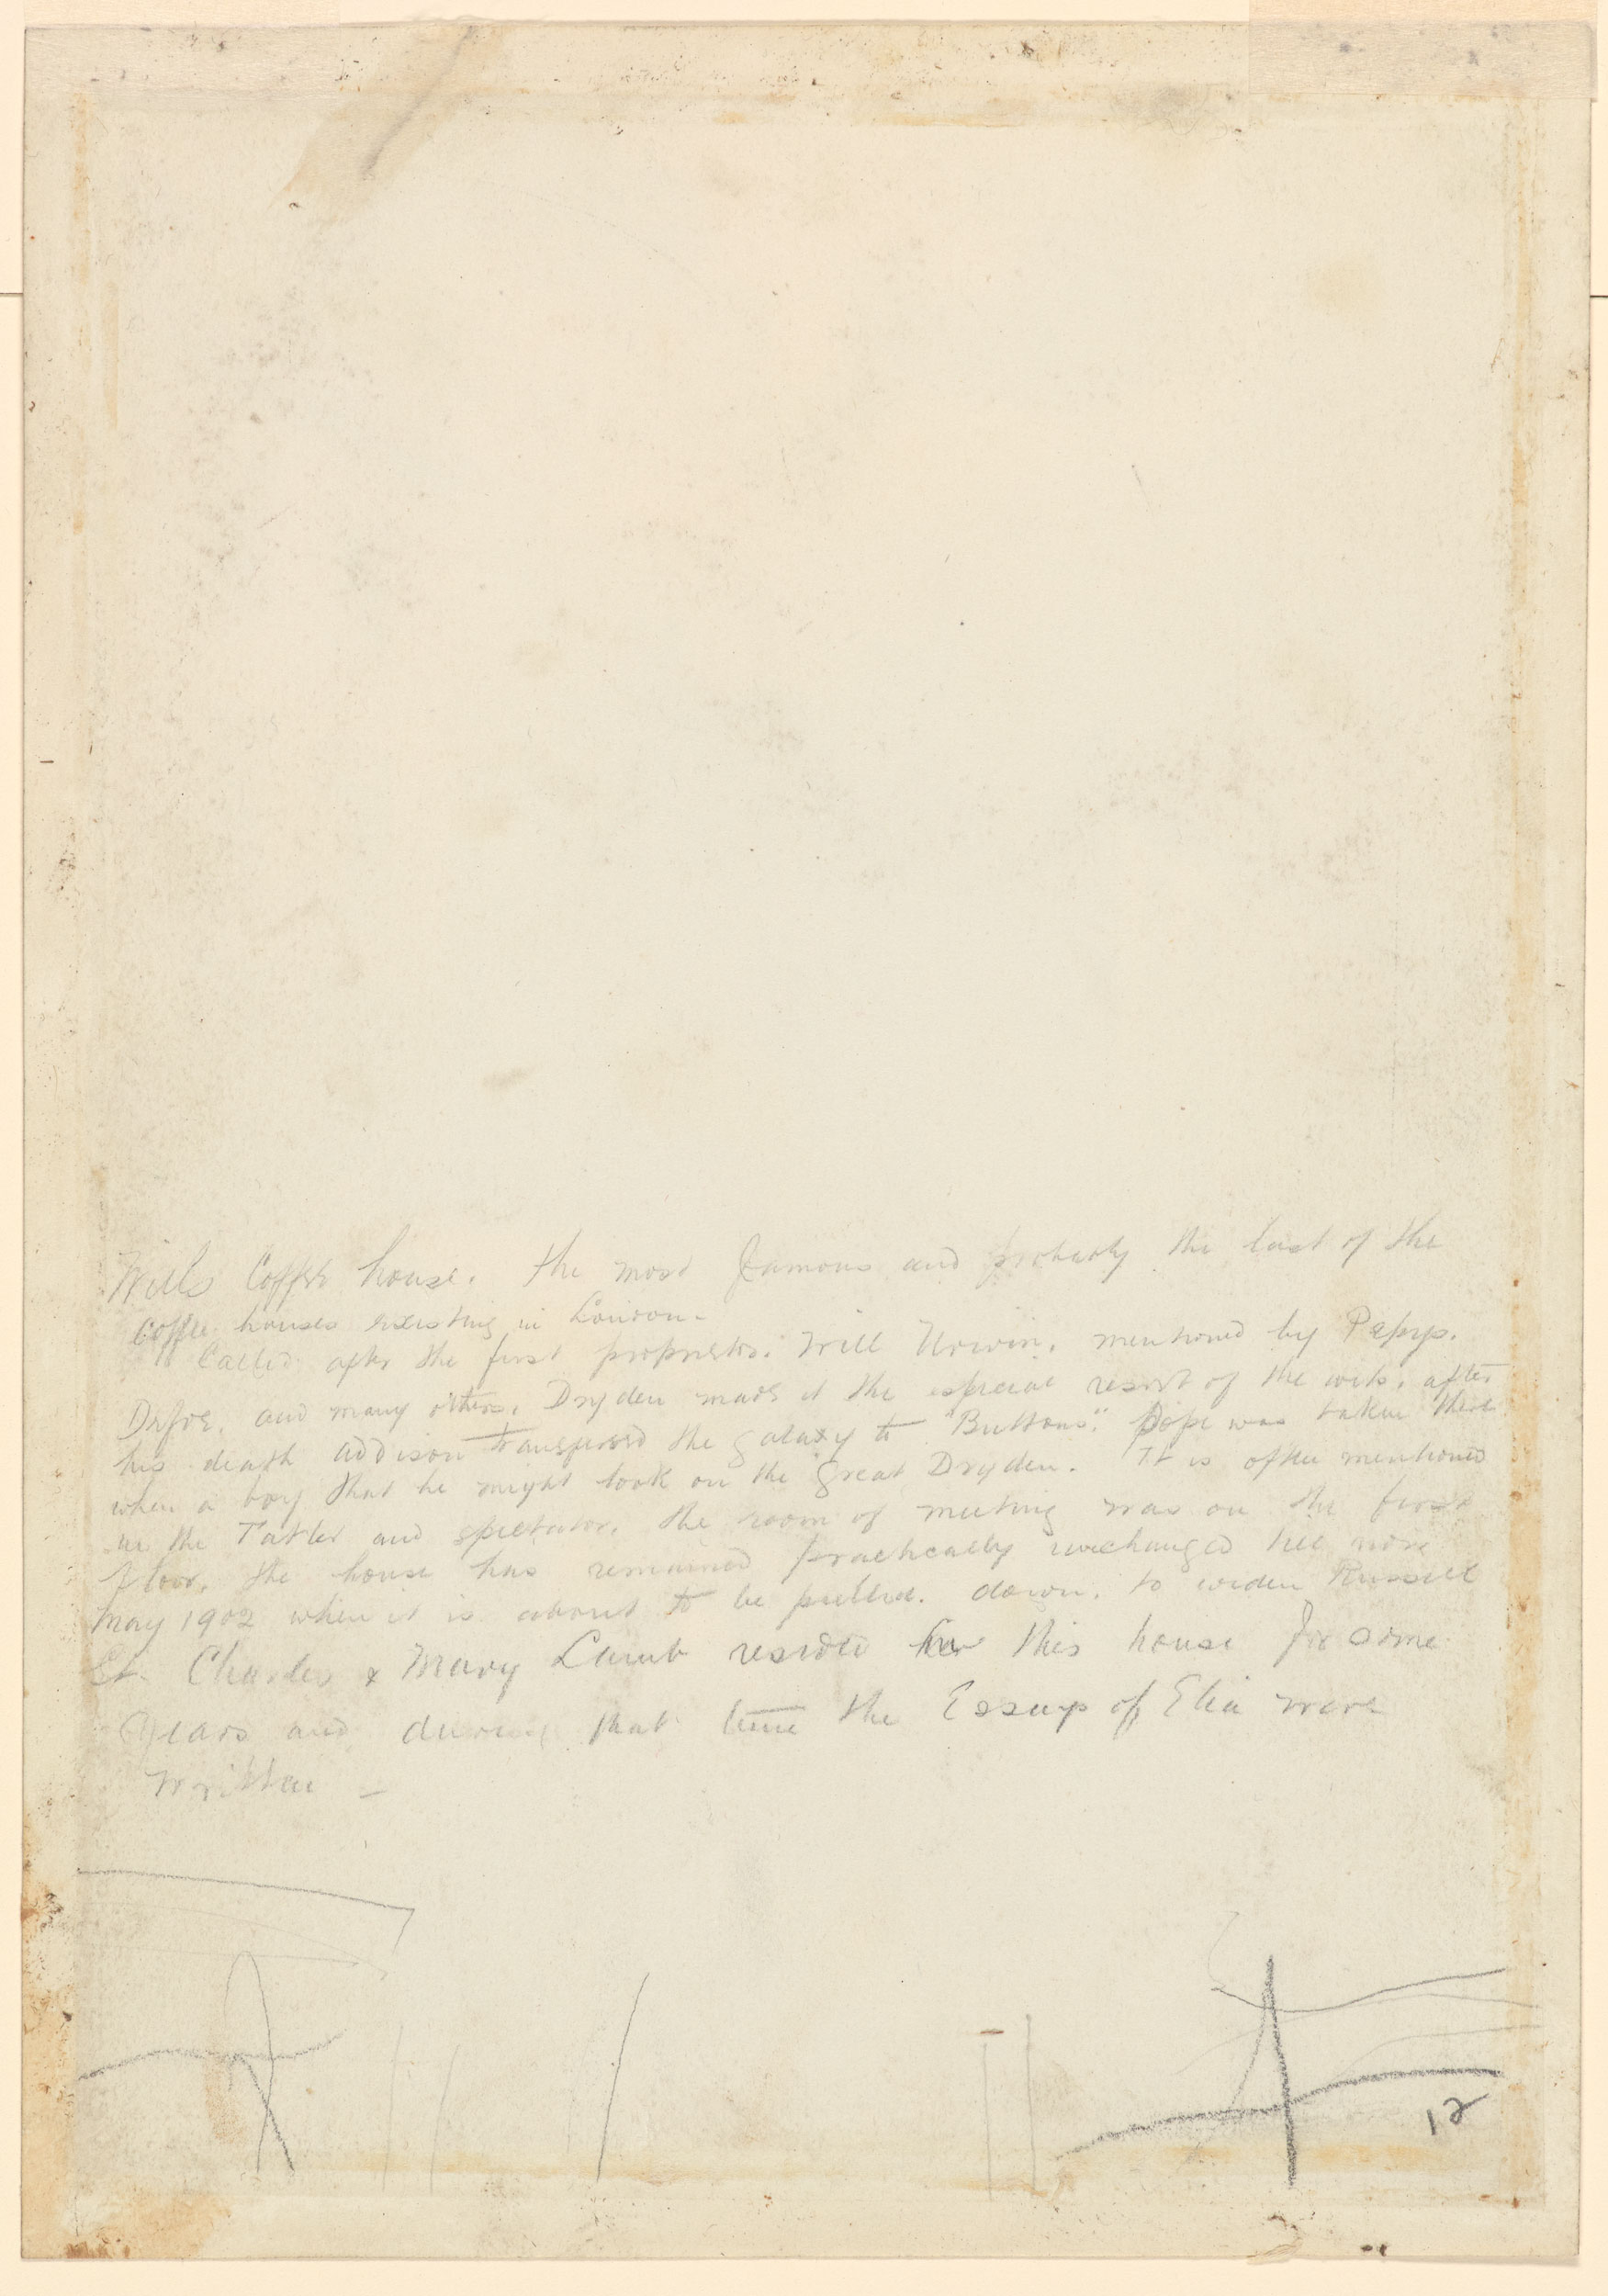 Wills Coffee house. The most famous and probably the last of the
Coffee houses existing in London-
Called after the first proprietor. Will Urwin, mentioned by Pepys.
Defoe, and many others. Dryden made it the especial resort of the wits. after
his death Addison transferred the galaxy to "Buttons". Pope was taken there
when a boy that he might look on the great Dryden. It is often mentioned
in the Tatler and spectator. The room of meeting was on the first
floor. The house has remained practically unchanged till now
May 1902 when it is about to be pulled. down. to widen Russell
St. Charles & Mary Lamb resided in this house for some
years and during that time the Essays of Elia were
written –
12